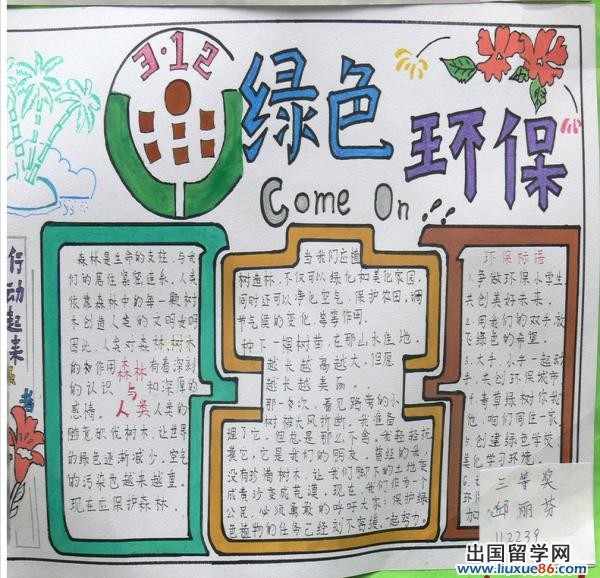 3·12
绿色环保
Come On !!
行动起来
森林是生命的支柱,与我
们的居住紧密连系,人类
依靠森林中的每一颗树
木创造人类的文明
因此,人类对森林,树木
的和作用 有着深刻
的认识 和深厚的
感情。 人类的
随意砍伐树木,让世界
的绿色逐渐减少,空气
的污染也越来越重。
现在应保护森林。
森林
与
人类
当我们应植
树造林,不仅可以绿化和美化家园,
同时还可以净化空气,保护农田,调
节气候的变化,等等作用。
种下一棵树苗,在那山水佳地。
越长越高越大,但愿
越长越美丽。
那一次,看见路旁的小
树被大风折断,我准备
埋了它,但总是那么不舍。我轻轻抚
摸它,它是我们的朋友,曾经的我,
没有珍惜树木,让我们脚下的土地变
成黄沙变成荒漠。现在,我们作为一个
公民,必须勇敢的呼吁大家:保护绿
色植物的任务已经刻不容缓,一起努力。
环保标语
1.争做环保小学生
共创美好未来。
2.用我们的双手放
飞绿色的希望。
3.大手,小手一起动
手,共创环保城市
4.青草绿树你我
他,咱们同住一家
5.创建绿色学校
美化学习环境。
6.
环保
加
三等奖
邱丽芬
112239
出国留学网
www.liuxue86.com